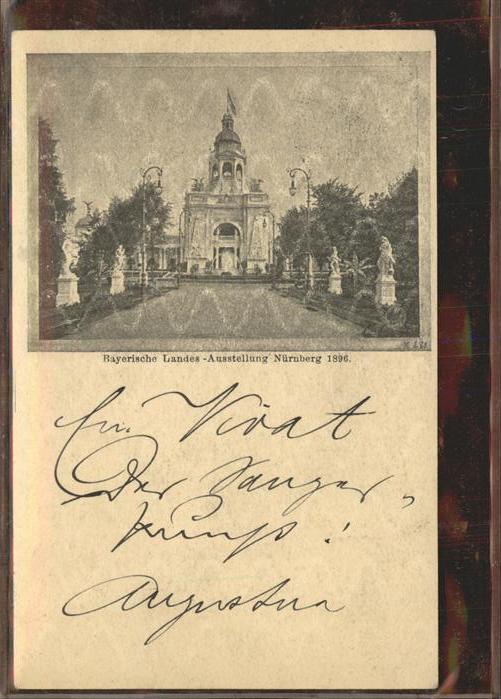 Bayerische Landes-Ausstellung Nürnberg 1896.
Ein Vivat
Der Sanges-
kunst!
Augustina